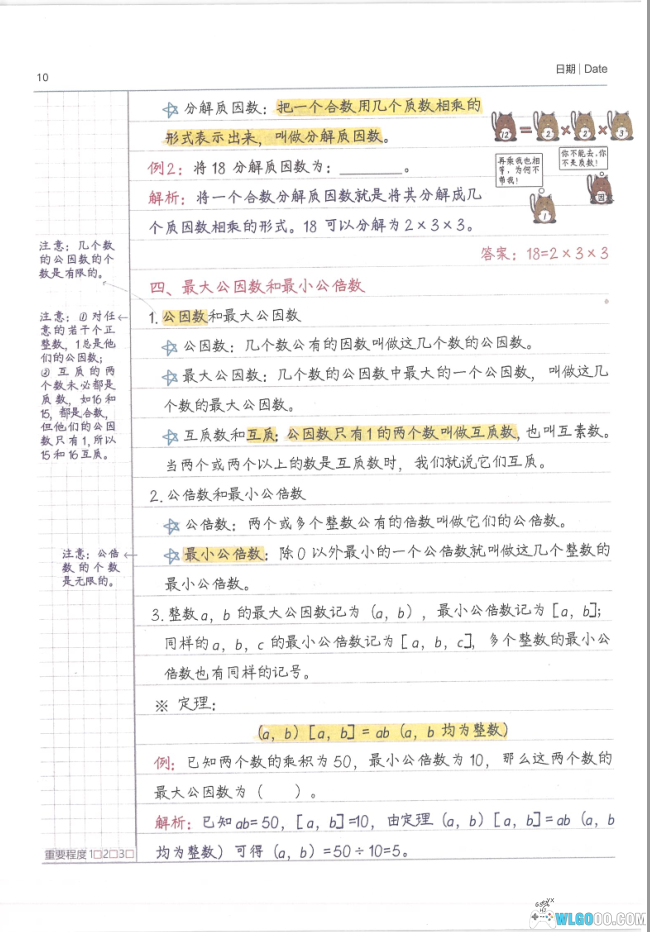 10
日期 | Date
☆ 分解质因数：把一个合数用几个质数相乘的
形式表示出来，叫做分解质因数。
12 = 2 × 2 × 3
再乘我也相
等，为何不
带我！
你不能去，你
不是质数！
1
因
例2：将 18 分解质因数为：________。
解析：将一个合数分解质因数就是将其分解成几
个质因数相乘的形式。18 可以分解为 2×3×3。
答案：18=2×3×3
注意：几个数
的公因数的个
数是有限的。
四、最大公因数和最小公倍数
1. 公因数和最大公因数
☆ 公因数：几个数公有的因数叫做这几个数的公因数。
☆ 最大公因数：几个数的公因数中最大的一个公因数，叫做这几
个数的最大公因数。
☆ 互质数和互质：公因数只有1的两个数叫做互质数，也叫互素数。
当两个或两个以上的数是互质数时，我们就说它们互质。
注意：① 对任
意的若干个正
整数，1总是他
们的公因数；
② 互质的两
个数未必都是
质数，如16和
15，都是合数，
但他们的公因
数只有1，所以
15和16互质。
2. 公倍数和最小公倍数
☆ 公倍数：两个或多个整数公有的倍数叫做它们的公倍数。
☆ 最小公倍数：除0以外最小的一个公倍数就叫做这几个整数的
最小公倍数。
注意：公倍
数的个数
是无限的。
3. 整数a，b 的最大公因数记为（a，b），最小公倍数记为［a，b］；
同样的a，b，c 的最小公倍数记为［a，b，c］，多个整数的最小公
倍数也有同样的记号。
※ 定理：
（a，b）［a，b］= ab（a，b 均为整数）
例：已知两个数的乘积为50，最小公倍数为10，那么这两个数的
最大公因数为（　　）。
解析：已知ab=50，［a，b］=10，由定理（a，b）［a，b］=ab（a，b
均为整数）可得（a，b）=50÷10=5。
重要程度 1□2□3□
WLGOOO.COM